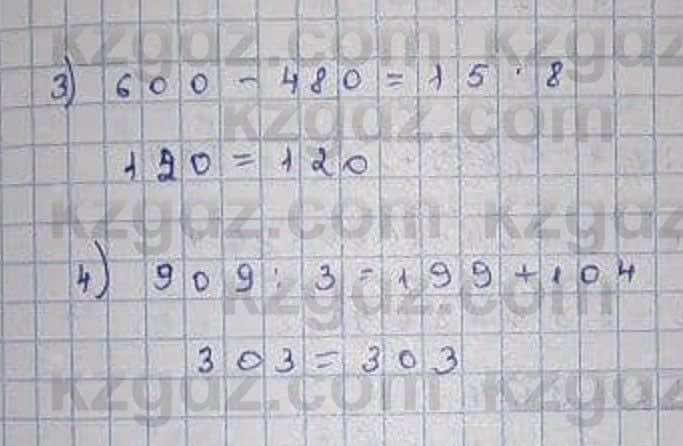 kzgdz.com kzgdz
3) 600 - 480 = 15 · 8
kzgdz.com
120 = 120
kzgdz.com kzgdz
4) 909 : 3 = 199 + 104
kzgdz.com
303 = 303
kzgdz.com kzgdz